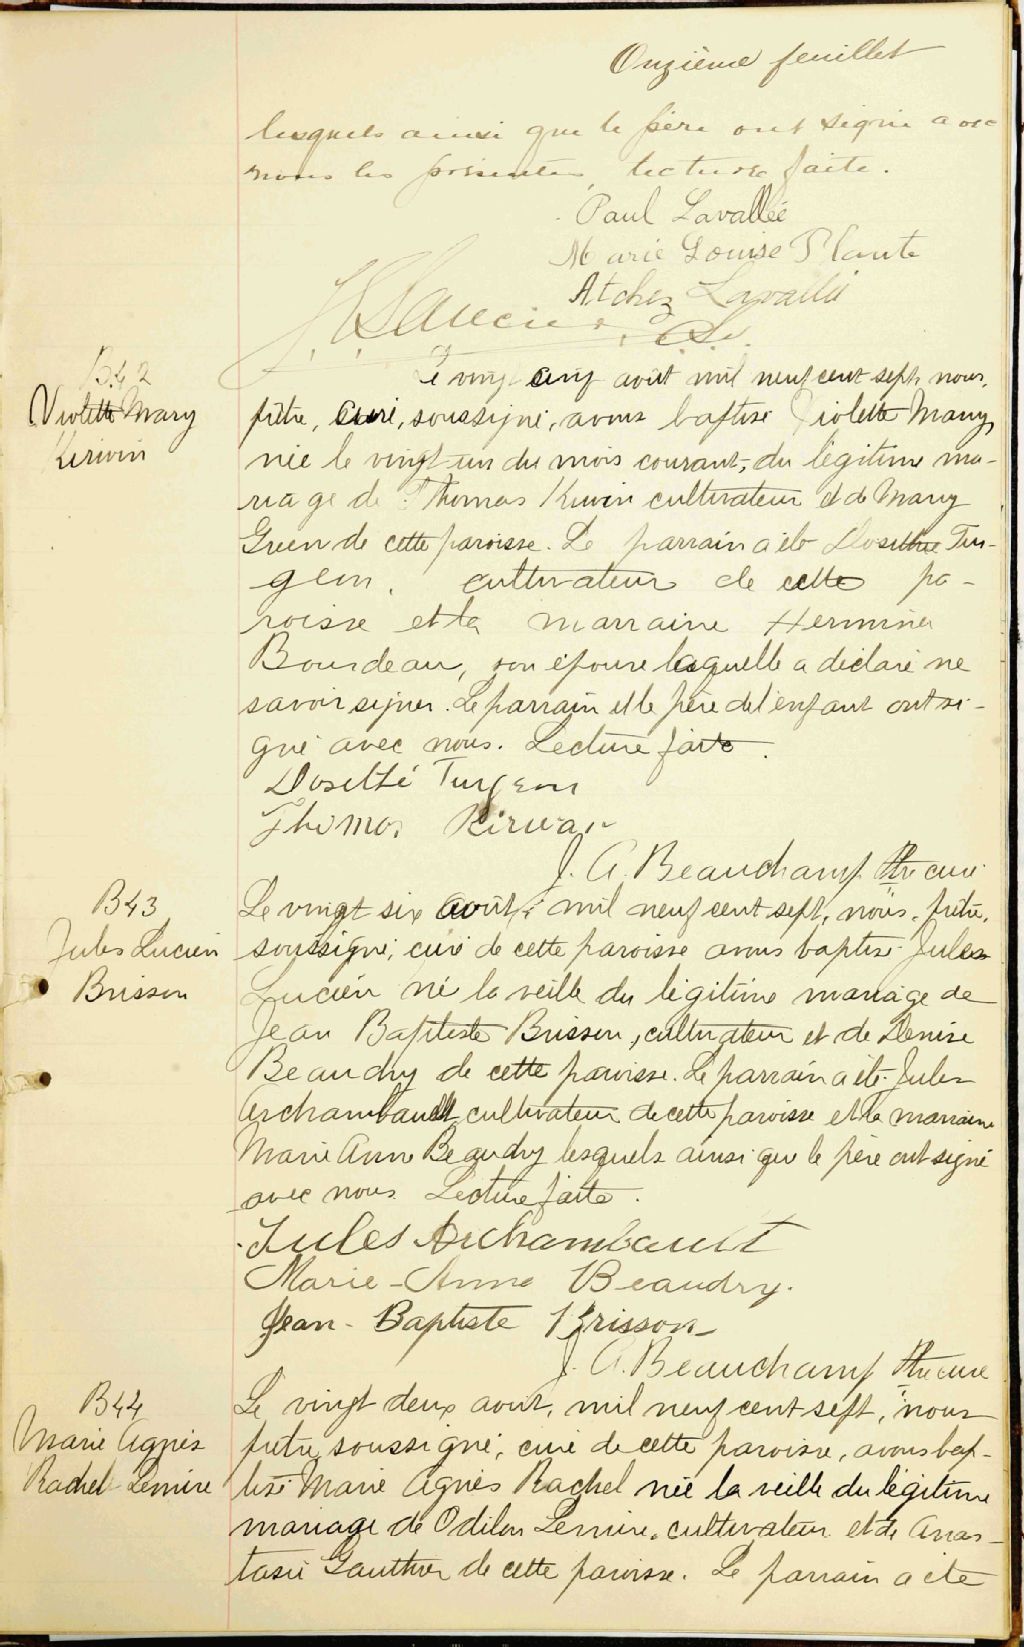 Onzième feuillet
lesquels ainsi que le père ont signé avec
nous les présentes, lecture faite.
Paul Lavallée
Marie Louise Plante
Lavallée
B42
Violette Mary
Kirwin
Le vingt cinq août mil neuf cent sept, nous,
prêtre, curé, soussigné, avons baptisé Violette Mary,
née le vingt-un du mois courant, du légitime ma-
riage de Thomas Kirwin cultivateur et de Mary
Green de cette paroisse. Le parrain a été Dosithée Tur-
geon, cultivateur de cette pa-
roisse et la marraine Hermine
Bourdeau, son épouse laquelle a déclaré ne
savoir signer. Le parrain et le père de l'enfant ont si-
gné avec nous. Lecture faite.
Dosithé Turgeon
Thomas Kirwan
J. A. Beauchamp Ptre curé
B43
Jules Lucien
Brisson
Le vingt six août, mil neuf cent sept, nous, prêtre,
soussigné, curé de cette paroisse avons baptisé Jules
Lucien né la veille du légitime mariage de
Jean Baptiste Brisson, cultivateur et de Denise
Beaudry de cette paroisse. Le parrain a été Jules
Archambault cultivateur de cette paroisse et la marraine
Marie Anne Beaudry lesquels ainsi que le père ont signé
avec nous. Lecture faite.
Jules Archambault
Marie-Anne Beaudry.
Jean-Baptiste Brisson
J. A. Beauchamp Ptre curé
B44
Marie Agnès
Rachel Lemire
Le vingt deux août, mil neuf cent sept, nous
prêtre, soussigné, curé de cette paroisse, avons bap-
tisé Marie Agnès Rachel née la veille du légitime
mariage de Odilon Lemire, cultivateur et de Anas-
tasie Gauthier de cette paroisse. Le parrain a été